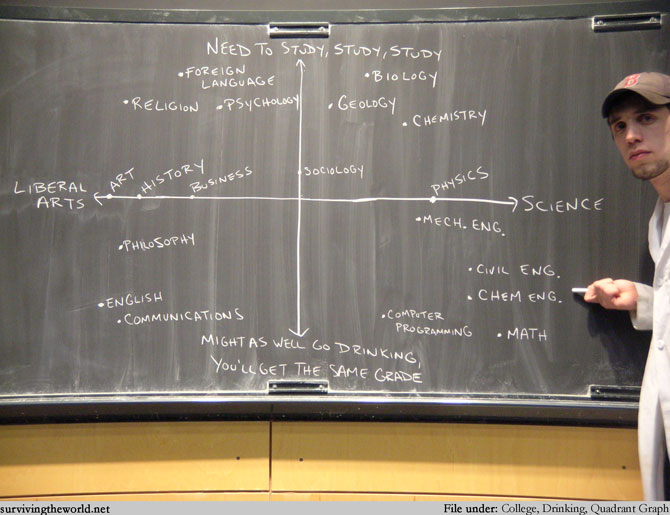 NEED TO STUDY, STUDY, STUDY
• FOREIGN LANGUAGE
• BIOLOGY
• RELIGION
• PSYCHOLOGY
• GEOLOGY
• CHEMISTRY
LIBERAL ARTS
ART
HISTORY
BUSINESS
SOCIOLOGY
PHYSICS
SCIENCE
• MECH. ENG.
• PHILOSOPHY
• CIVIL ENG.
• CHEM ENG.
• ENGLISH
• COMMUNICATIONS
• COMPUTER PROGRAMMING
• MATH
MIGHT AS WELL GO DRINKING,
YOU'LL GET THE SAME GRADE
B
survivingtheworld.net
File under: College, Drinking, Quadrant Graph